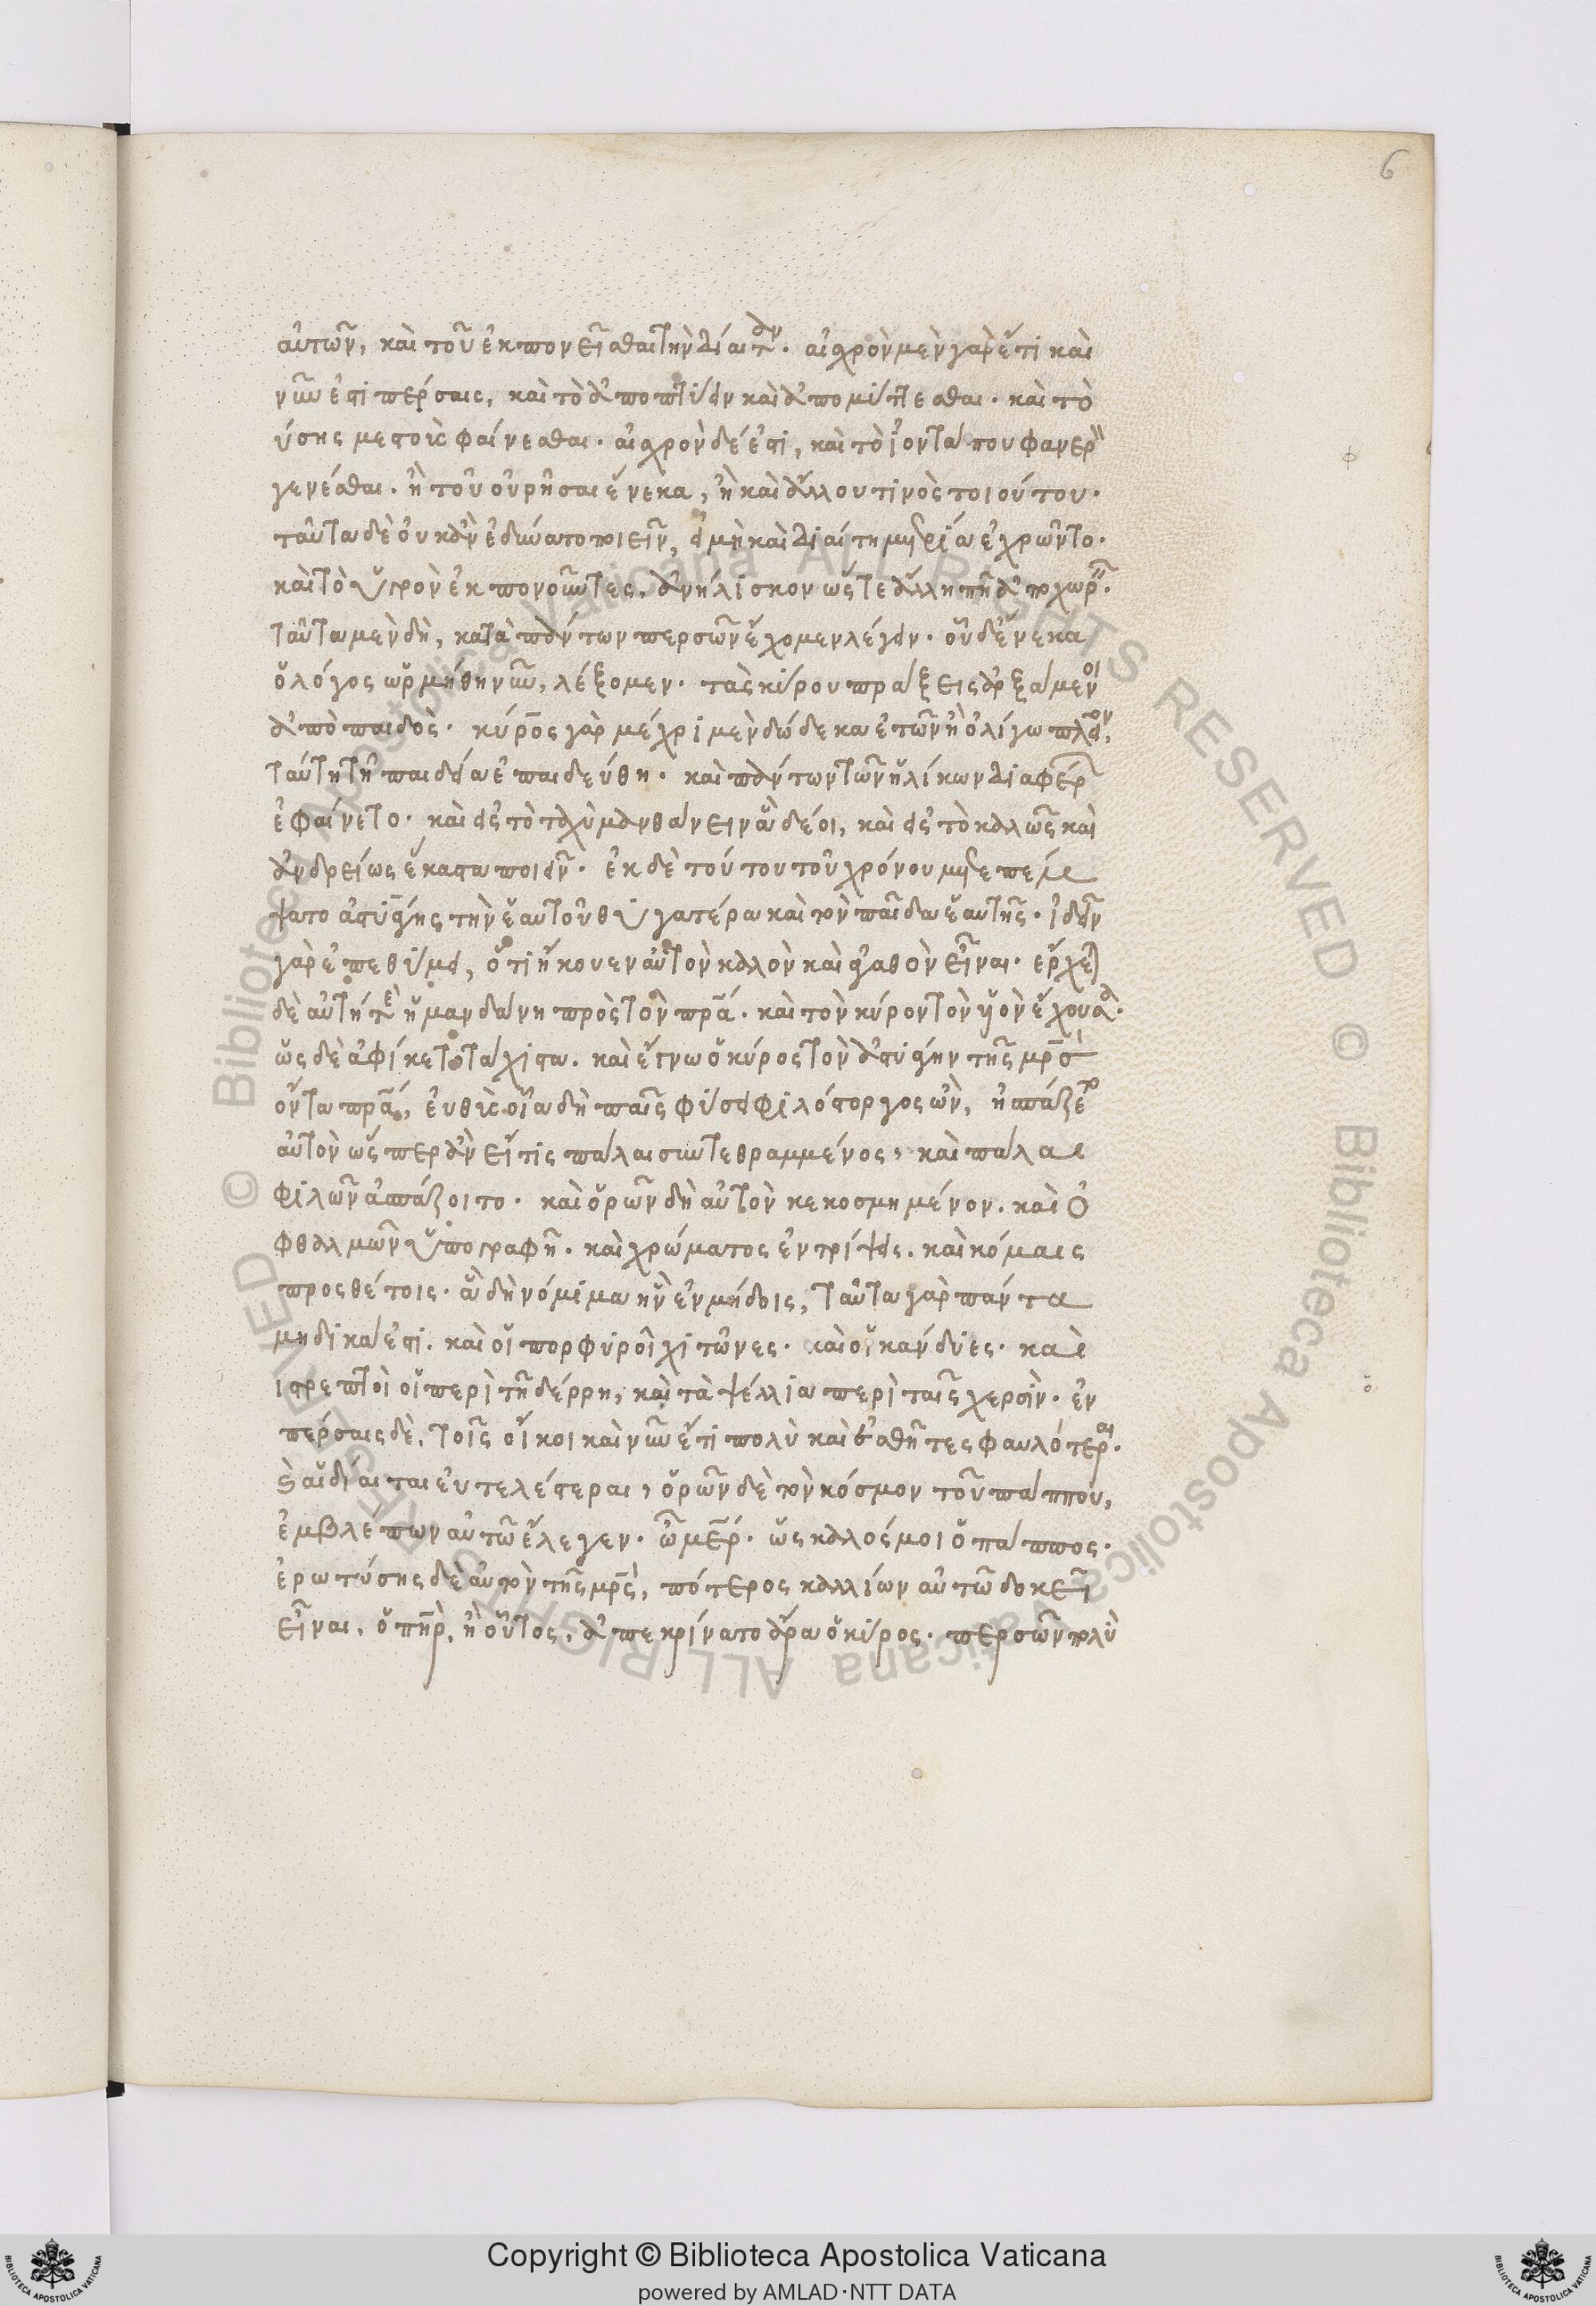 6
αὐτῶν, καὶ τοῦ ἐκπονεῖσθαι τὴν δίαιταν. αἰσχρὸν μὲν γὰρ ἔτι καὶ
νῦν ἐστι πέρσαις, καὶ τὸ ἀποπτύειν καὶ ἀπομύττεσθαι. καὶ τὸ
φύσης μεστοὺς φαίνεσθαι. αἰσχρὸν δέ ἐστι, καὶ τὸ ἰόντα που φανερὸν
γενέσθαι. ἢ τοῦ οὐρῆσαι ἕνεκα, ἢ καὶ ἄλλου τινὸς τοιούτου.
ταῦτα δὲ οὐκ ἂν ἐδύναντο ποιεῖν, εἰ μὴ καὶ διαίτῃ μετρίᾳ ἐχρῶντο.
καὶ τὸ ὑγρὸν ἐκπονοῦντες, ἀνήλισκον ὥστε ἄλλῃ πῃ ἀποχωρεῖν.
ταῦτα μὲν δὴ, κατὰ πάντων περσῶν ἔχομεν λέγειν. οὗ δ' ἕνεκα
ὁ λόγος ὡρμήθη νῦν, λέξομεν. τὰς κύρου πράξεις ἀρξάμενοι
ἀπὸ παιδός. κύρος γὰρ μέχρι μὲν δώδεκα ἐτῶν ἢ ὀλίγω πλεῖον,
ταύτη τῆ παιδεία ἐπαιδεύθη. καὶ πάντων τῶν ἡλίκων διαφέρων
ἐφαίνετο. καὶ εἰς τὸ ταχὺ μανθάνειν ἃ δέοι, καὶ εἰς τὸ καλῶς καὶ
ἀνδρείως ἕκαστα ποιεῖν. ἐκ δὲ τούτου τοῦ χρόνου μετεπέμ
ψατο ἀστυάγης τὴν ἑαυτοῦ θυγατέρα καὶ τὸν παῖδα ἑαυτῆς. ἰδεῖν
γὰρ ἐπεθύμει, ὅτι ἤκουεν αὐτὸν καλὸν καὶ ἀγαθὸν εἶναι. ἔρχεται
δὲ αὐτή τε ἡ μανδάνη πρὸς τὸν πρα. καὶ τὸν κύρον τὸν υἱὸν ἔχουσα.
ὡς δὲ ἀφίκετο τάχιστα. καὶ ἔγνω ὁ κύρος τὸν ἀστυάγην τῆς μρσ
ὄντα πρα, εὐθὺς οἷα δὴ παῖς φύσει φιλόστοργος ὢν, ἠσπάζετο
αὐτὸν ὥσπερ ἂν εἴ τις πάλαι συντεθραμμένος, καὶ πάλαι
φιλῶν ἀσπάζοιτο. καὶ ὁρῶν δὴ αὐτὸν κεκοσμημένον. καὶ ὀ
φθαλμῶν ὑπογραφῆ. καὶ χρώματος ἐντρίψει. καὶ κόμαις
προσθέτοις. ἃ δὴ νόμιμα ἦν ἐν μήδοις, ταῦτα γὰρ πάντα
μηδικά ἐστι. καὶ οἱ πορφυροῖ χιτῶνες. καὶ οἱ κάνδυες. καὶ
στρεπτοὶ οἱ περὶ τῆ δέρρη, καὶ τὰ ψέλλια περὶ ταῖς χερσὶν. ἐν
πέρσαις δὲ, τοῖς οἴκοι καὶ νῦν ἔτι πολὺ καὶ ἐσθῆτες φαυλότεραι.
καὶ αἱ δίαιται εὐτελέστεραι, ὁρῶν δὲ τὸν κόσμον τοῦ πάππου,
ἐμβλέπων αὐτῶ ἔλεγεν. ὦ μερ. ὡς καλός μοι ὁ πάππος.
ἐρωτώσης δὲ αὐτὸν τῆς μρς, πότερος καλλίων αὐτῶ δοκεῖ
εἶναι, ὁ πηρ, ἢ οὗτος, ἀπεκρίνατο ἄρα ὁ κύρος. περσῶν πολὺ
Copyright © Biblioteca Apostolica Vaticana
powered by AMLAD·NTT DATA